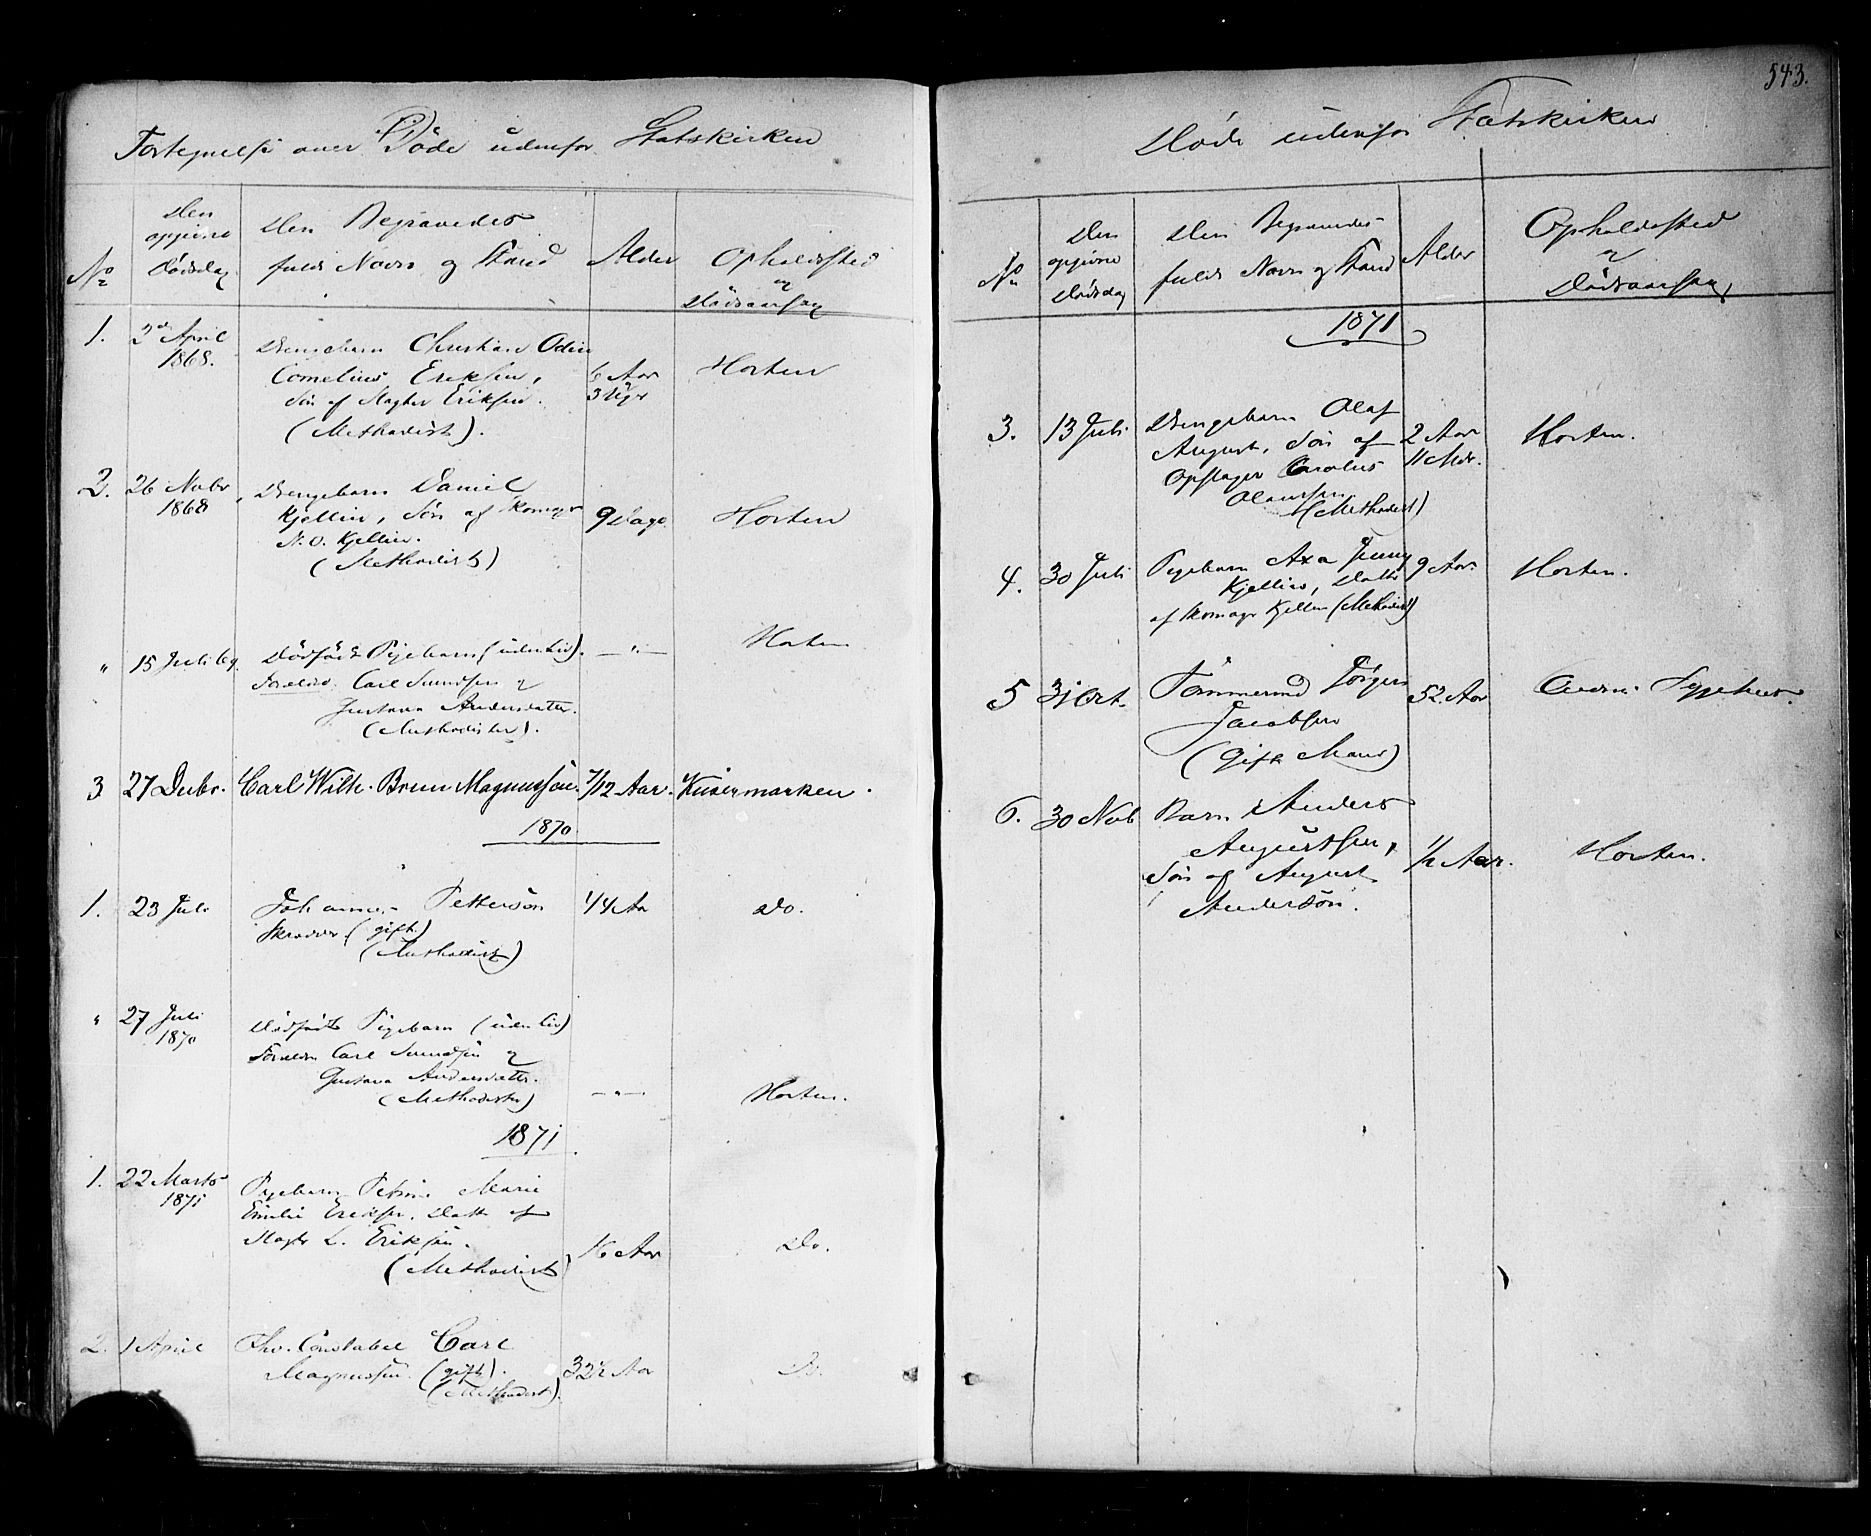 Fortegnelse over Døde udenfor Statskirken
No
Den opgivne Dødsdag
Den Begravedes fulde Navn og Stand
Alder
Opholdssted og Dødsaarsag
1. 2den April 1868.
Drengebarn Christian Odin
Cornelius Eriksen,
Søn af Slagter Eriksen.
(Methodist).
Aar
3 Uger
Horten
2. 26 Novbr 1868
Drengebarn Daniel
Kjellin, Søn af Skomager
N. O. Kjellin.
(Methodist)
9 Dage
Horten
" 15 Juli 69
Dødfødt Pigebarn (uden Liv).
Forældre Carl Svendsen og
Gustava Andersdatter.
(Methodister).
— " —
Horten
3 27 Decbr. Carl Wilh. Bruun Magnussøn. 7/12 Aar.
1870.
1. 23 Juli
Johannes Pettersøn
Skræder (gift)
(Methodist)
44 Aar
Do.
" 27 Juli 1870
Dødfødt Pigebarn (uden Liv)
Forældre Carl Svendsen og
Gustava Andersdatter.
(Methodister)
— " —
Horten.
1871
1. 22 Marts 1871
Pigebarn Petrine Marie
Emilie Eriksen. Datter af
Slagter L. Eriksen.
(Methodist)
Aar
Do.
2. 1 April
Constabel Carl
Magnussen. (gift).
(Methodist).
32½ Aar
Do.
543.
Døde udenfor Statskirken
No
Den opgivne Dødsdag
Den Begravedes fulde Navn og Stand
Alder
Opholdssted og Dødsaarsag
1871
3. 13 Juli
Drengebarn Olaf
August, Søn af
Opslager Carolus
Olaussen
(Methodist)
2 Aar
11 Mdr.
Horten.
4. 30 Juli
Pigebarn Axa Jenny
Kjellin, Datter
af Skomager Kjellin (Methodist)
9 Aar.
Horten.
5 31 Oct.
Tømmermd Jörgen
Jacobsen
(gift Mand)
52 Aar
6. 30 Nob
Barn Anders
Augustsen,
Søn af August
Andersön.
½ Aar.
Horten.